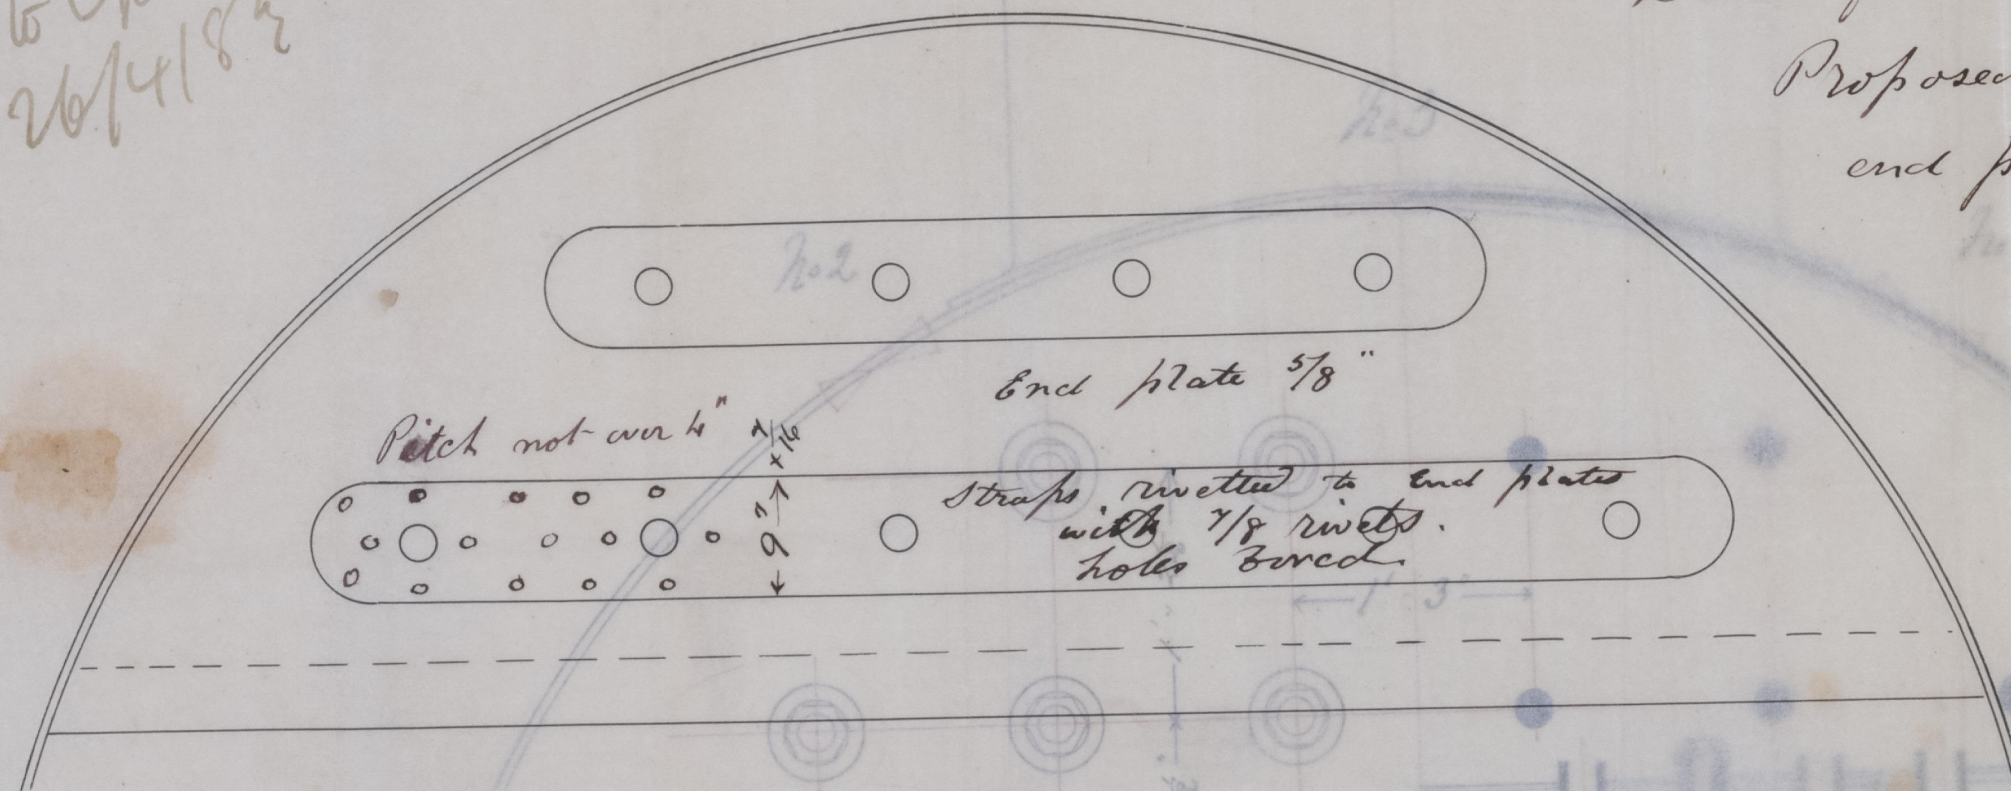 26/4/82
Proposed
end
No 3
No 2
End plate 5/8"
Pitch not over 4"
9" × 7/16
Straps rivetted to End plates
with 7/8 rivets.
holes Bored.
1' 3"